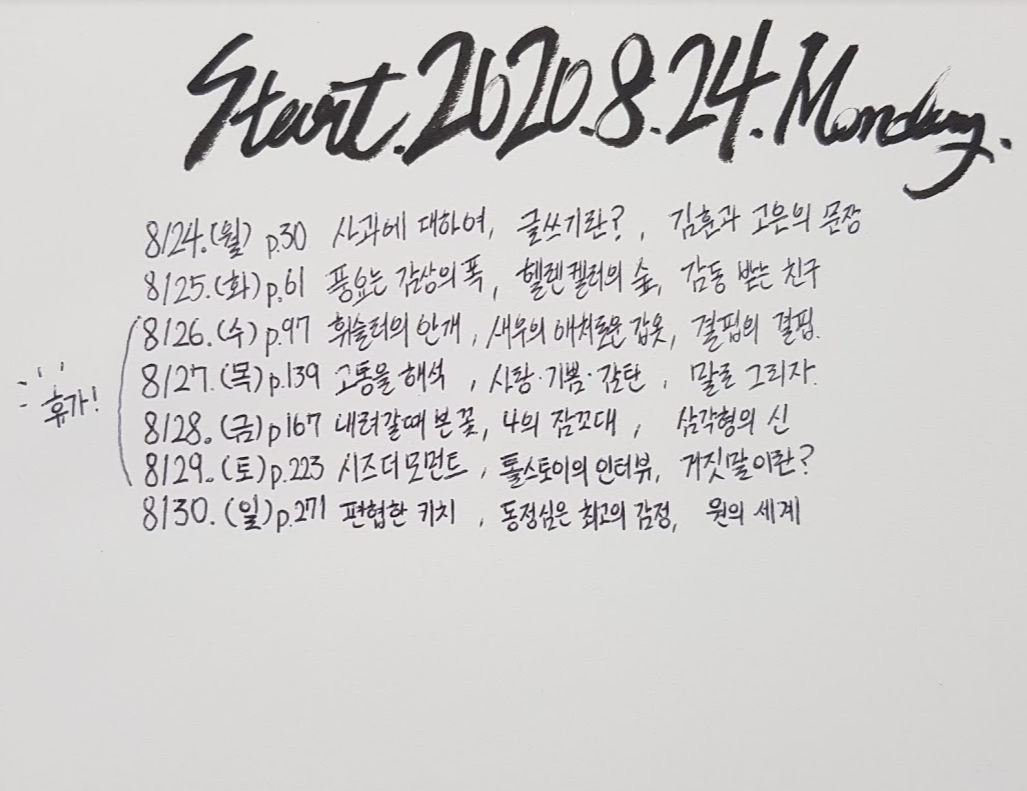 Start. 2020. 8. 24. Monday.
8/24.(월) p.30 사과에 대하여, 글쓰기란?, 김훈과 고은의 문장
8/25.(화) p.61 풍요는 감상의 폭, 헬렌켈러의 숲, 감동 받는 친구
8/26.(수) p.97 휘슬러의 안개, 새우의 애처로운 갑옷, 결핍의 결핍.
8/27.(목) p.139 고통을 해석, 사랑·기쁨·감탄, 말로 그리자.
휴가!
8/28.(금) p167 내려갈때 본 꽃, 4의 잠꼬대, 삼각형의 신
8/29.(토) p.223 시즈더모먼트, 톨스토이의 인터뷰, 거짓말이란?
8/30.(일) p.271 편협한 키치, 동정심은 최고의 감정, 원의 세계